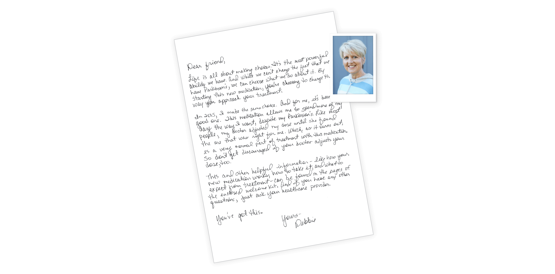 Dear friend,
Life is all about making choices—it's the most powerful
ability we have. And while we can't change the fact that we
have Parkinson's, we can choose what we do about it. By
starting this new medication, you're choosing to change the
way you approach your treatment.
In 2015, I made the same choice. And for me, it's been a
good one. This medication allows me to spend more of my
days the way I want, despite my Parkinson's. Like most
people, my doctor adjusted my dose until she found
the one that was right for me. Which, as it turns out,
is a very normal part of treatment with this medication.
So don't get discouraged if your doctor adjusts your
dose, too.
This and other helpful information—like how your
new medication works, how to take it, and what to
expect from treatment—can be found in the pages of
the enclosed welcome kit. And if you have any other
questions, just ask your healthcare provider.
You've got this.
Yours—
Debbie